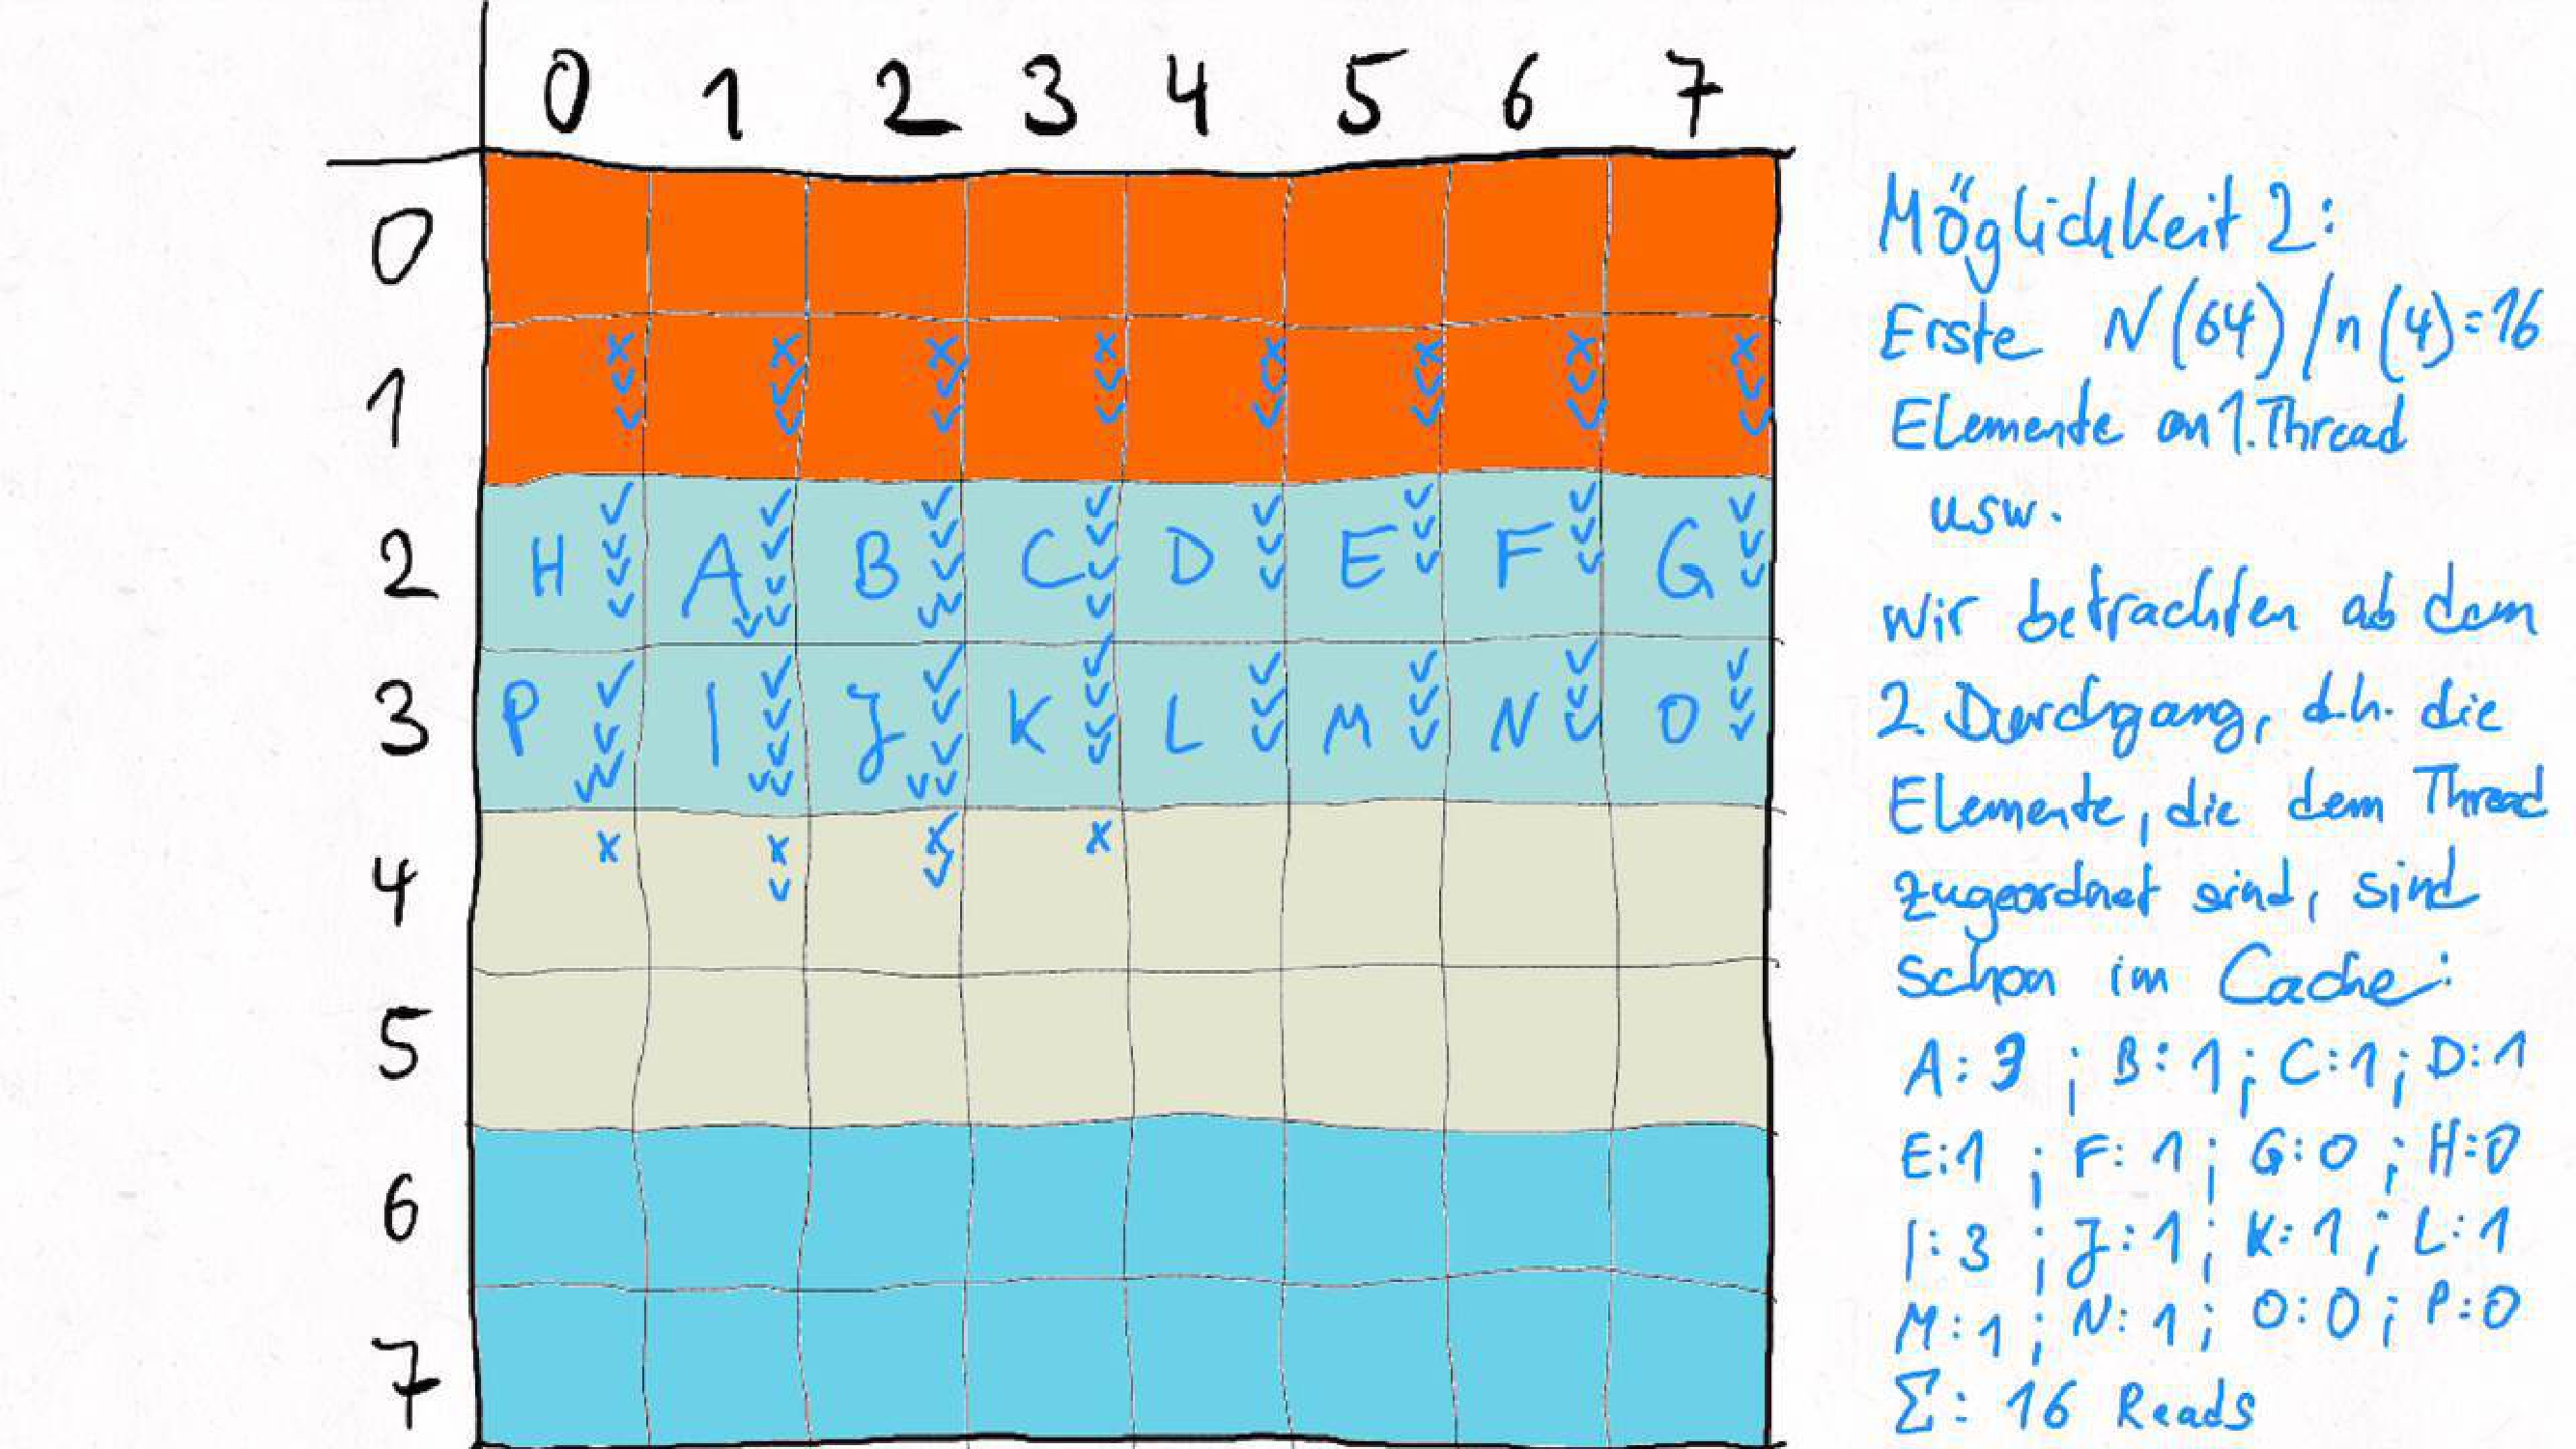 0 1 2 3 4 5 6 7
0
1 x x x x x x x x
2 H A B C D E F G
3 P I J K L M N O
4 x x x x
5
6
7
Möglichkeit 2:
Erste N(64)/n(4)=16
Elemente an 1. Thread
usw.
Wir betrachten ab dem
2. Durchgang, d.h. die
Elemente, die dem Thread
zugeordnet sind, sind
schon im Cache:
A: 3 ; B: 1 ; C: 1 ; D: 1
E: 1 ; F: 1 ; G: 0 ; H: 0
I: 3 ; J: 1 ; K: 1 ; L: 1
M: 1 ; N: 1 ; O: 0 ; P: 0
Σ: 16 Reads